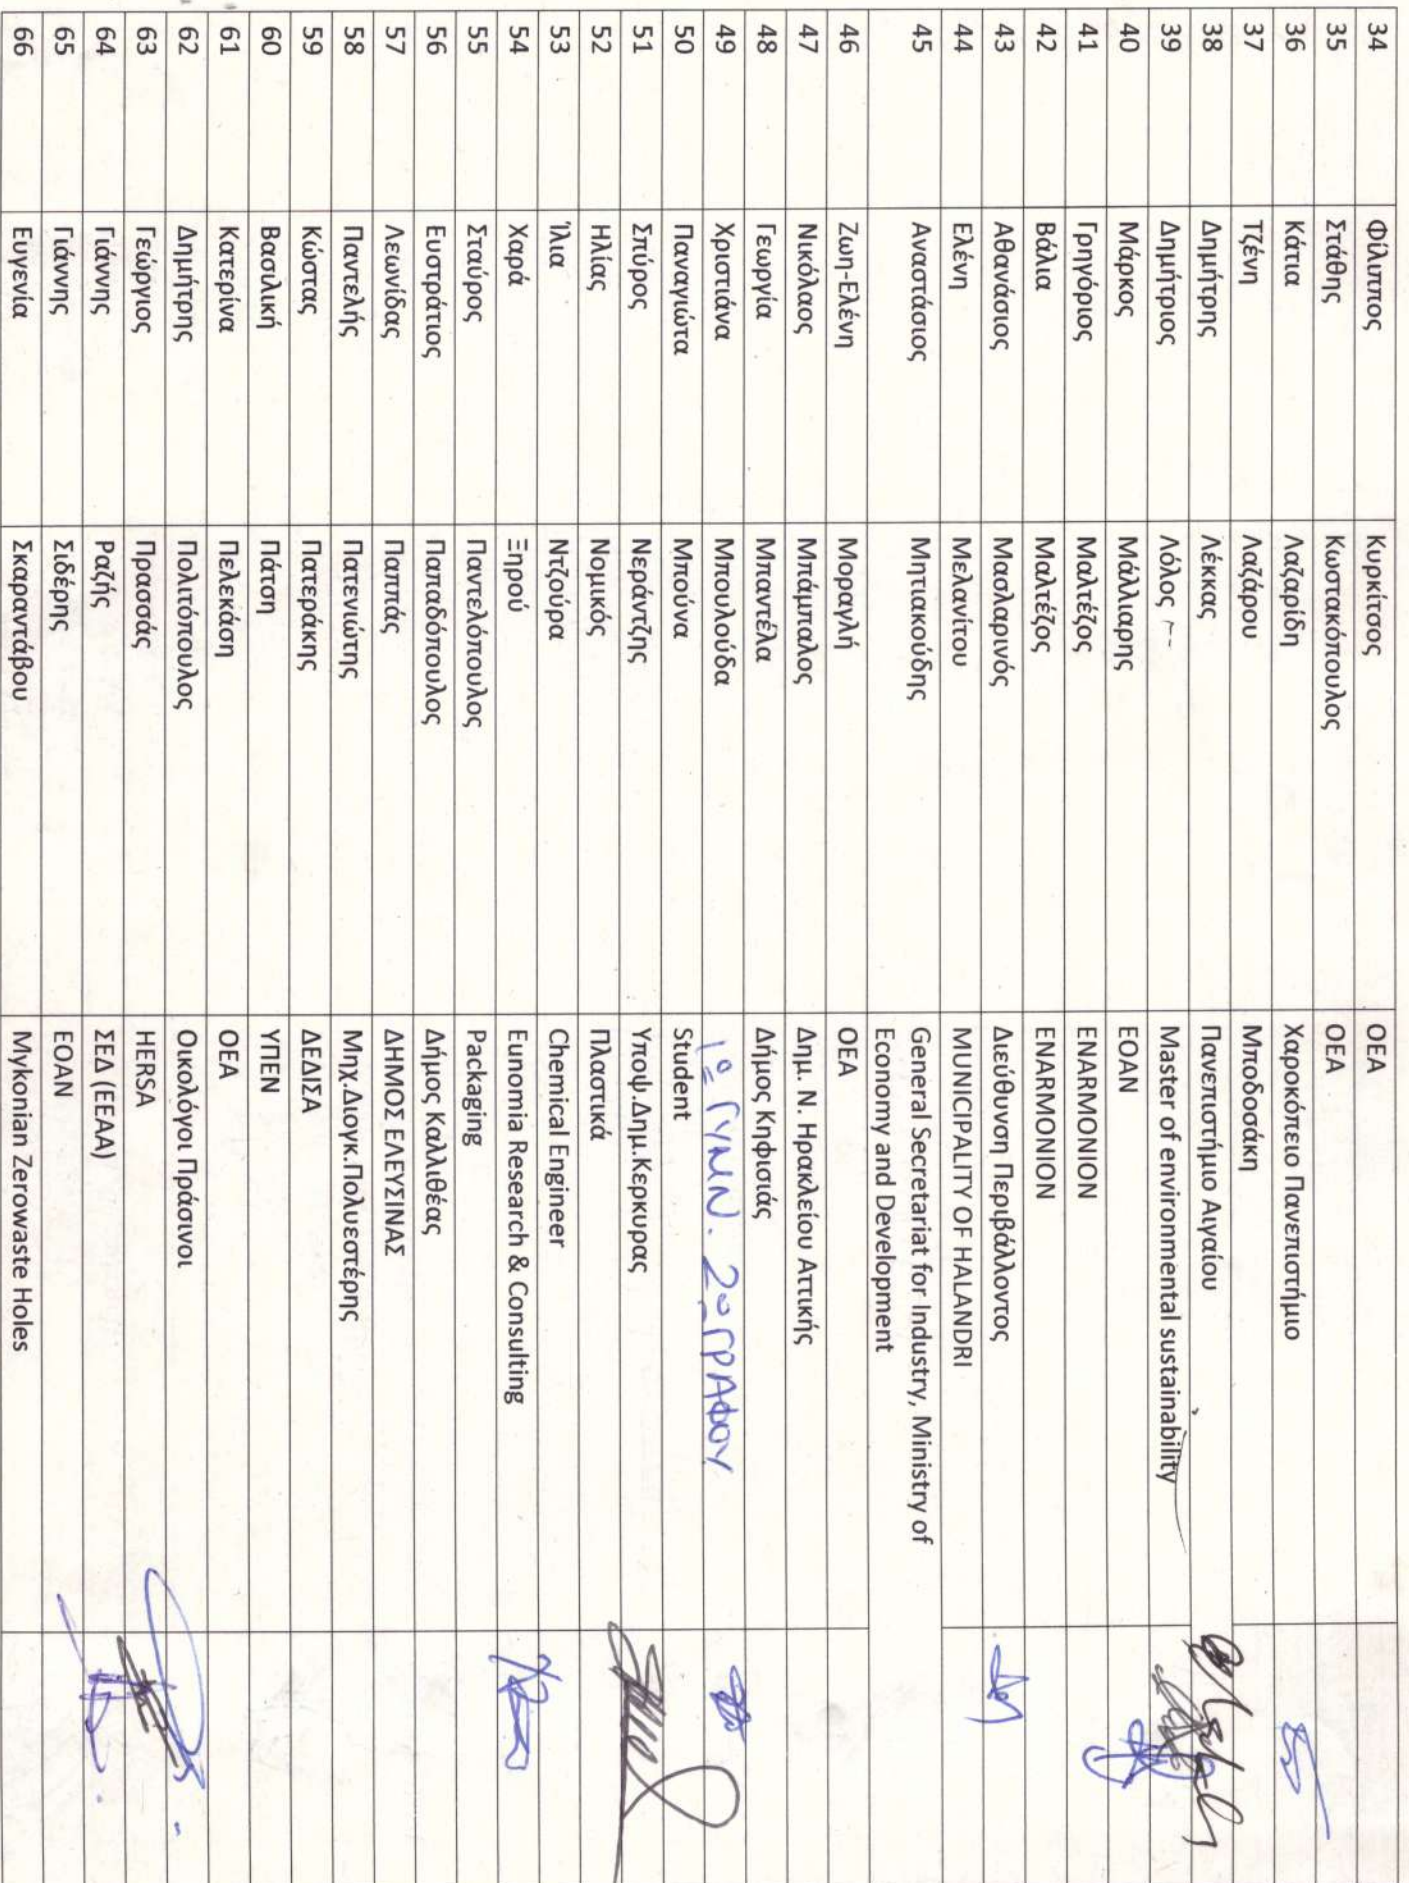 34 Φίλιππος Κυρκίτσος ΟΕΑ
35 Στάθης Κωστακόπουλος ΟΕΑ
36 Κάτια Λαζαρίδη Χαροκόπειο Πανεπιστήμιο
37 Τζένη Λαζάρου Μποδοσάκη
38 Δημήτρης Λέκκας Πανεπιστήμιο Αιγαίου
39 Δημήτριος Λόλος Master of environmental sustainability
40 Μάρκος Μάλλιαρης ΕΟΑΝ
41 Γρηγόριος Μαλτέζος ENARMONION
42 Βάλια Μαλτέζος ENARMONION
43 Αθανάσιος Μασλαρινός Διεύθυνση Περιβάλλοντος
44 Ελένη Μελανίτου MUNICIPALITY OF HALANDRI
45 Αναστάσιος Μητιακούδης General Secretariat for Industry, Ministry of
Economy and Development
46 Ζωη-Ελένη Μοραγλή ΟΕΑ
47 Νικόλαος Μπάμπαλος Δημ. Ν. Ηρακλείου Αττικής
48 Γεωργία Μπαντέλα Δήμος Κηφισιάς
49 Χριστιάνα Μπουλούδα 1ο ΓΥΜΝ. ΖΩΓΡΑΦΟΥ
50 Παναγιώτα Μπούνα Student
51 Σπύρος Νεράντζης Υποψ.Δημ.Κερκυρας
52 Ηλίας Νομικός Πλαστικά
53 Ίλια Ντζούρα Chemical Engineer
54 Χαρά Ξηρού Eunomia Research & Consulting
55 Σταύρος Παντελόπουλος Packaging
56 Ευστράτιος Παπαδόπουλος Δήμος Καλλιθέας
57 Λεωνίδας Παππάς ΔΗΜΟΣ ΕΛΕΥΣΙΝΑΣ
58 Παντελής Πατενιώτης Μηχ.Διογκ.Πολυεστέρης
59 Κώστας Πατεράκης ΔΕΔΙΣΑ
60 Βασιλική Πάτση ΥΠΕΝ
61 Κατερίνα Πελεκάση ΟΕΑ
62 Δημήτρης Πολιτόπουλος Οικολόγοι Πράσινοι
63 Γεώργιος Πρασσάς HERSA
64 Γιάννης Ραζής ΣΕΔ (ΕΕΑΑ)
65 Γιάννης Σιδέρης ΕΟΑΝ
66 Ευγενία Σκαραντάβου Mykonian Zerowaste Holes